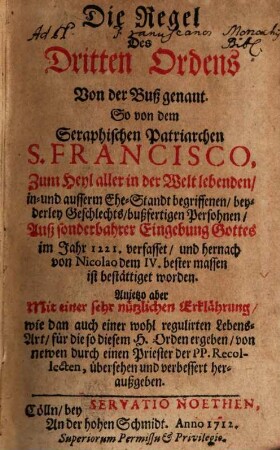 Die Regel
Des
Dritten Ordens
Von der Buß genant.
So von dem
Seraphischen Patriarchen
S. FRANCISCO,
Zum Heyl aller in der Welt lebenden/
in-und ausserm Ehe-Standt begriffenen/ bey-
derley Geschlechts/ bußfertigen Persohnen/
Auß sonderbahrer Eingebung Gottes
im Jahr 1221. verfasset/ und hernach
von Nicolao dem IV. bester massen
ist bestättiget worden.
Anjetzo aber
Mit einer sehr nützlichen Erklährung/
wie dan auch einer wohl regulirten Lebens-
Art/ für die so diesem H. Orden ergeben/ von
newen durch einen Priester der PP. Recol-
lecten, übersehen und verbessert her-
außgeben.
Cölln/ bey SERVATIO NOETHEN,
An der hohen Schmidt. Anno 1712.
Superiorum Permissu & Privilegio.